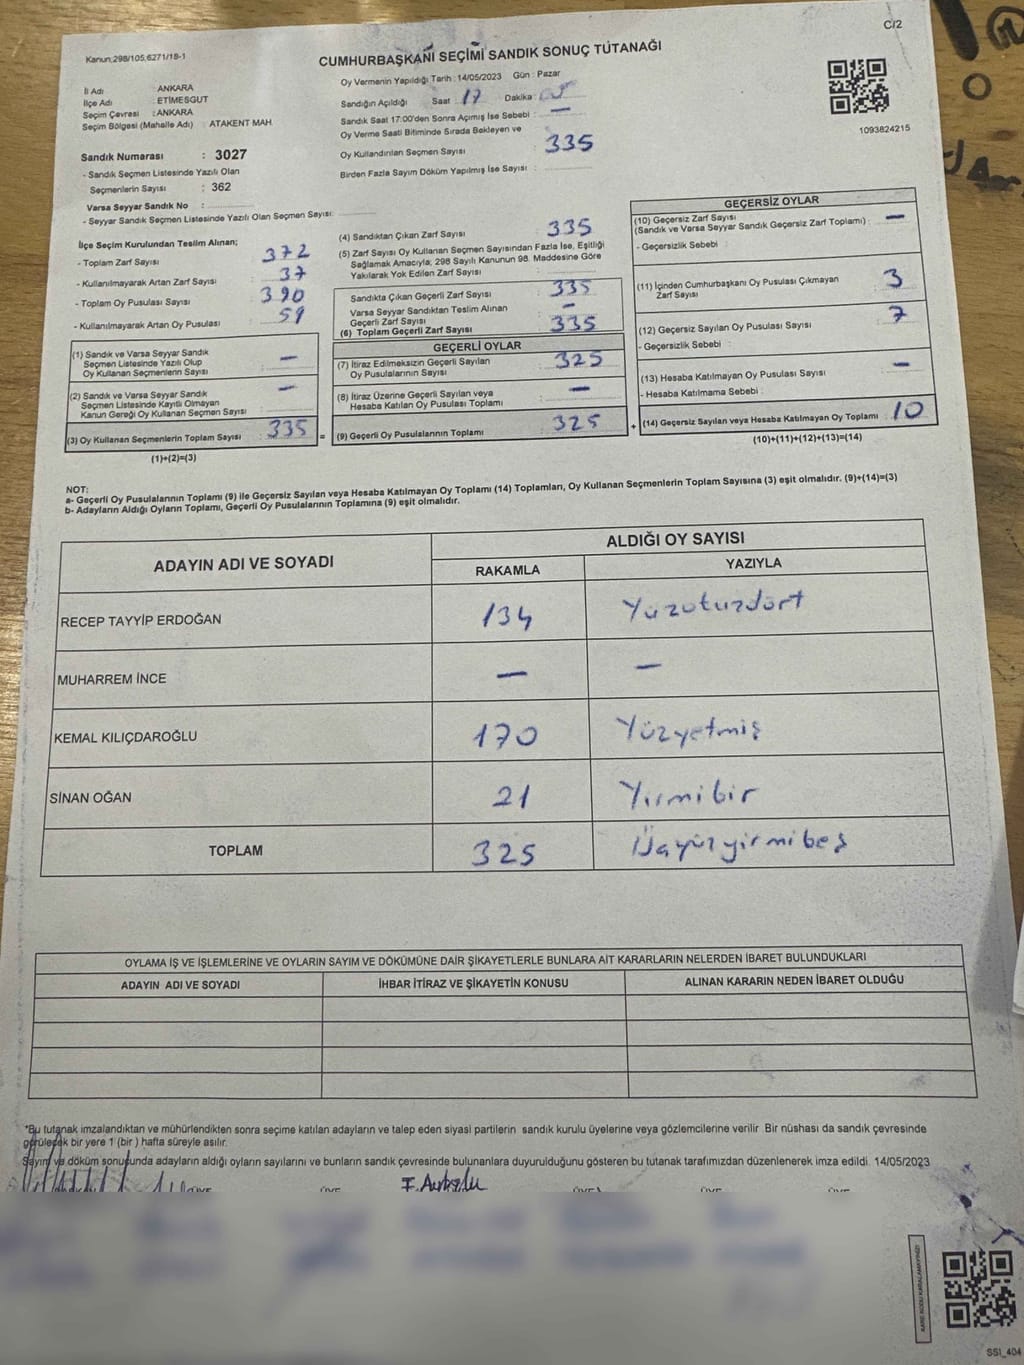 Kanun;298/105,6271/18-1
C/2
CUMHURBAŞKANI SEÇİMİ SANDIK SONUÇ TUTANAĞI
İl Adı : ANKARA
İlçe Adı : ETİMESGUT
Seçim Çevresi : ANKARA
Seçim Bölgesi (Mahalle Adı) : ATAKENT MAH.
Sandık Numarası : 3027
- Sandık Seçmen Listesinde Yazılı Olan
Seçmenlerin Sayısı : 362
Varsa Seyyar Sandık No :
- Seyyar Sandık Seçmen Listesinde Yazılı Olan Seçmen Sayısı:
Oy Vermenin Yapıldığı Tarih : 14/05/2023 Gün : Pazar
Sandığın Açıldığı Saat : 17 Dakika :
Sandık Saat 17:00'den Sonra Açımış İse Sebebi : —
Oy Verme Saati Bitiminde Sırada Bekleyen ve
Oy Kullandırılan Seçmen Sayısı : 335
Birden Fazla Sayım Döküm Yapılmış İse Sayısı :
1093824215
İlçe Seçim Kurulundan Teslim Alınan;
- Toplam Zarf Sayısı : 372
- Kullanılmayarak Artan Zarf Sayısı : 37
- Toplam Oy Pusulası Sayısı : 390
- Kullanılmayarak Artan Oy Pusulası : 59
(1) Sandık ve Varsa Seyyar Sandık
Seçmen Listesinde Yazılı Olup
Oy Kullanan Seçmenlerin Sayısı : —
(2) Sandık ve Varsa Seyyar Sandık
Seçmen Listesinde Kayıtlı Olmayan
Kanun Gereği Oy Kullanan Seçmen Sayısı : —
(3) Oy Kullanan Seçmenlerin Toplam Sayısı : 335 =
(1)+(2)=(3)
(4) Sandıktan Çıkan Zarf Sayısı : 335
(5) Zarf Sayısı Oy Kullanan Seçmen Sayısından Fazla İse, Eşitliği
Sağlamak Amacıyla; 298 Sayılı Kanunun 98. Maddesine Göre
Yakılarak Yok Edilen Zarf Sayısı :
Sandıkta Çıkan Geçerli Zarf Sayısı : 335
Varsa Seyyar Sandıktan Teslim Alınan
Geçerli Zarf Sayısı : —
(6) Toplam Geçerli Zarf Sayısı : 335
GEÇERLİ OYLAR
(7) İtiraz Edilmeksizin Geçerli Sayılan
Oy Pusulalarının Sayısı : 325
(8) İtiraz Üzerine Geçerli Sayılan veya
Hesaba Katılan Oy Pusulası Toplamı : —
(9) Geçerli Oy Pusulalarının Toplamı : 325 +
GEÇERSİZ OYLAR
(10) Geçersiz Zarf Sayısı
(Sandık ve Varsa Seyyar Sandık Geçersiz Zarf Toplamı) : —
- Geçersizlik Sebebi :
(11) İçinden Cumhurbaşkanı Oy Pusulası Çıkmayan
Zarf Sayısı : 3
(12) Geçersiz Sayılan Oy Pusulası Sayısı : 7
- Geçersizlik Sebebi :
(13) Hesaba Katılmayan Oy Pusulası Sayısı : —
- Hesaba Katılmama Sebebi :
(14) Geçersiz Sayılan veya Hesaba Katılmayan Oy Toplamı : 10
(10)+(11)+(12)+(13)=(14)
NOT:
a- Geçerli Oy Pusulalarının Toplamı (9) ile Geçersiz Sayılan veya Hesaba Katılmayan Oy Toplamı (14) Toplamları, Oy Kullanan Seçmenlerin Toplam Sayısına (3) eşit olmalıdır. (9)+(14)=(3)
b- Adayların Aldığı Oyların Toplamı, Geçerli Oy Pusulalarının Toplamına (9) eşit olmalıdır.
ADAYIN ADI VE SOYADI ALDIĞI OY SAYISI
RAKAMLA YAZIYLA
RECEP TAYYİP ERDOĞAN 134 Yüzotuzdört
MUHARREM İNCE — —
KEMAL KILIÇDAROĞLU 170 Yüzyetmiş
SİNAN OĞAN 21 Yirmibir
TOPLAM 325 Üçyüzyirmibeş
OYLAMA İŞ VE İŞLEMLERİNE VE OYLARIN SAYIM VE DÖKÜMÜNE DAİR ŞİKAYETLERLE BUNLARA AİT KARARLARIN NELERDEN İBARET BULUNDUKLARI
ADAYIN ADI VE SOYADI İHBAR İTİRAZ VE ŞİKAYETİN KONUSU ALINAN KARARIN NEDEN İBARET OLDUĞU
*Bu tutanak imzalandıktan ve mühürlendikten sonra seçime katılan adayların ve talep eden siyasi partilerin sandık kurulu üyelerine veya gözlemcilerine verilir. Bir nüshası da sandık çevresinde
görülecek bir yere 1 (bir ) hafta süreyle asılır.
Sayım ve döküm sonucunda adayların aldığı oyların sayılarını ve bunların sandık çevresinde bulunanlara duyurulduğunu gösteren bu tutanak tarafımızdan düzenlenerek imza edildi. 14/05/2023
SSI_404